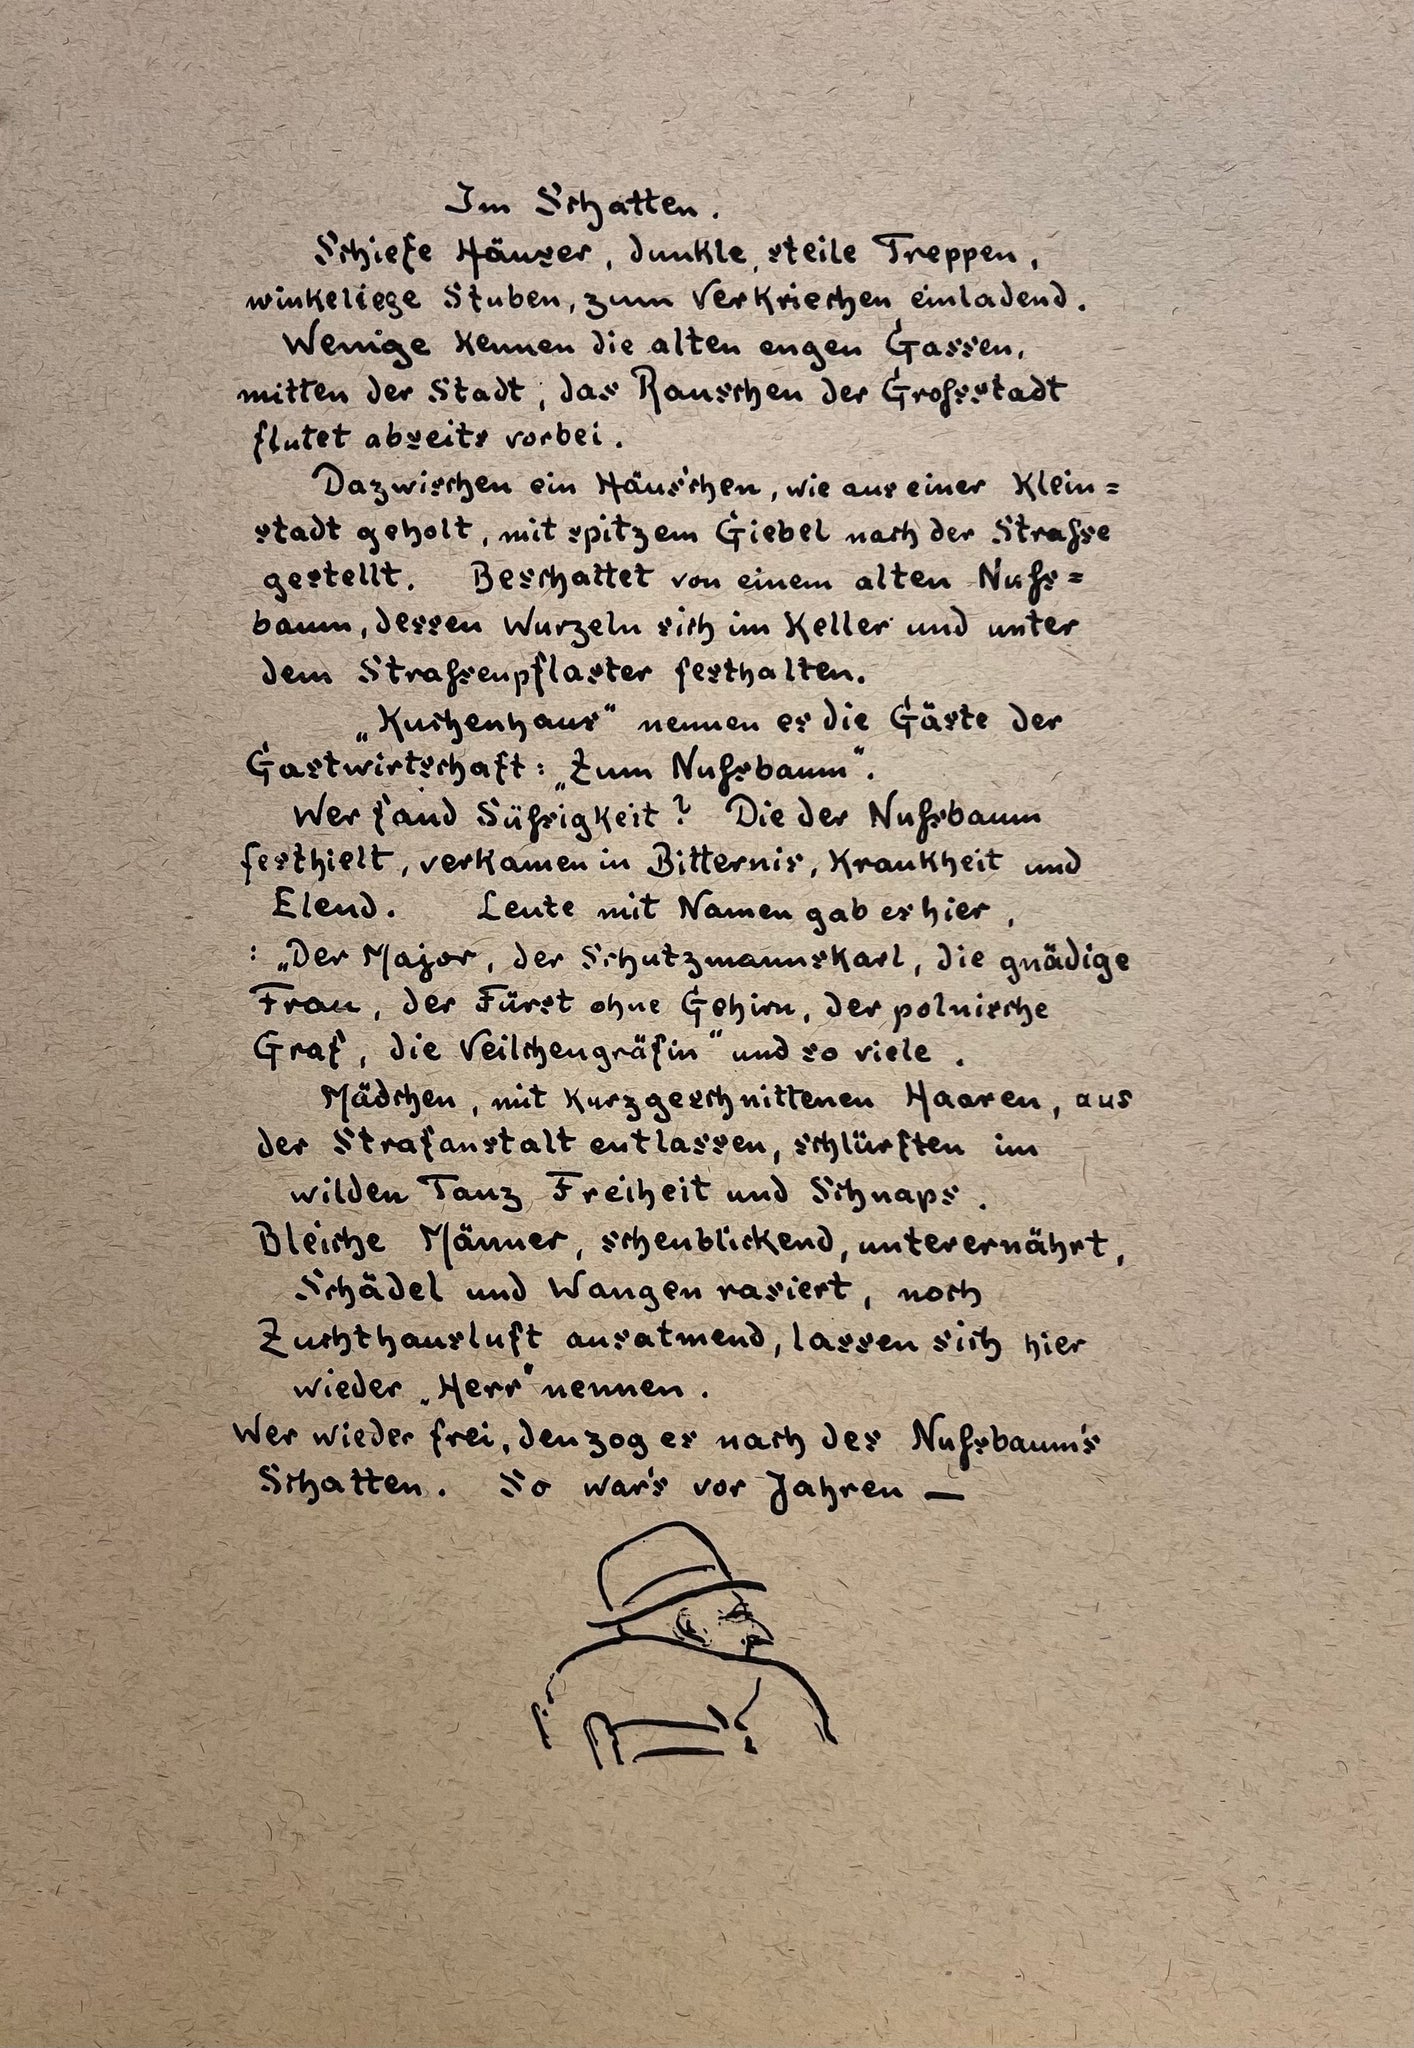 Im Schatten.
Schiefe Häuser, dunkle, steile Treppen,
winkeliege Stuben, zum Verkriechen einladend.
Wenige kennen die alten engen Gassen,
mitten der Stadt, das Rauschen der Grofsstadt
flutet abseits vorbei.
Dazwischen ein Häus'chen, wie aus einer Klein=
stadt geholt, mit spitzem Giebel nach der Strafse
gestellt. Beschattet von einem alten Nufs=
baum, dessen Wurzeln sich im Keller und unter
dem Strafsenpflaster festhalten.
„Kuchenhaus" nennen es die Gäste der
Gastwirtschaft: „Zum Nufsbaum".
Wer fand Süfsigkeit? Die der Nufsbaum
festhielt, verkamen in Bitternis, Krankheit und
Elend. Leute mit Namen gab es hier,
: „Der Major, der Schutzmannskarl, die gnädige
Frau, der Fürst ohne Gehirn, der polnische
Graf, die Veilchengräfin" und so viele.
Mädchen, mit kurzgeschnittenen Haaren, aus
der Strafanstalt entlassen, schlürften im
wilden Tanz Freiheit und Schnaps.
Bleiche Männer, scheublickend, unterernährt,
Schädel und Wangen rasiert, noch
Zuchthausluft ausatmend, lassen sich hier
wieder „Herr" nennen.
Wer wieder frei, den zog es nach des Nufsbaum's
Schatten. So war's vor Jahren —